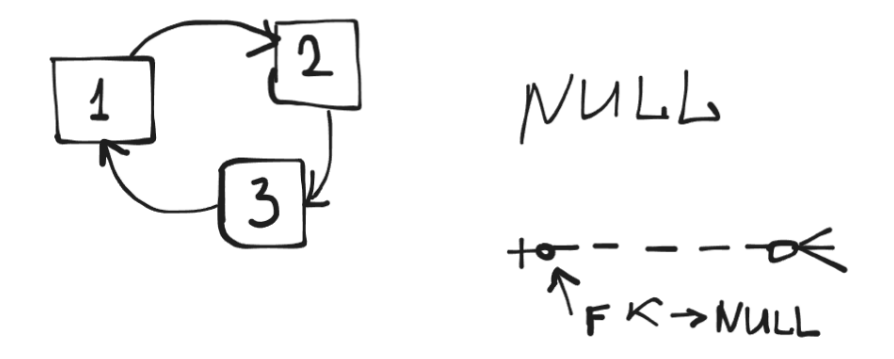 1
2
3
NULL
FK → NULL